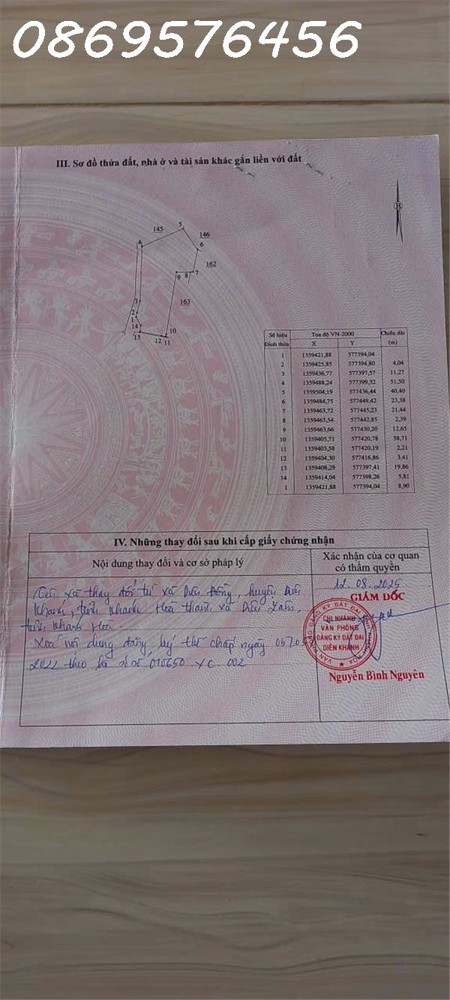 0869576456
III. Sơ đồ thửa đất, nhà ở và tài sản khác gắn liền với đất
145
5
146
6
4
162
9 8 7
163
3
2
1
14
10
13
12 11
Số hiệu đỉnh thửa | Tọa độ VN-2000 X Y | Chiều dài (m)
1 1359421,88 577394,04
4,04
2 1359425,85 577394,80
11,27
3 1359436,77 577397,57
51,50
4 1359488,24 577399,32
40,40
5 1359504,19 577436,44
23,38
6 1359484,75 577449,42
21,44
7 1359463,72 577445,23
2,39
8 1359463,54 577442,85
12,65
9 1359463,66 577430,20
58,71
10 1359405,71 577420,78
2,21
11 1359403,58 577420,19
3,41
12 1359404,30 577416,86
19,86
13 1359408,29 577397,41
5,81
14 1359414,04 577398,26
8,90
1 1359421,88 577394,04
IV. Những thay đổi sau khi cấp giấy chứng nhận
Nội dung thay đổi và cơ sở pháp lý
Xác nhận của cơ quan có thẩm quyền
xã thay đổi từ xã Diên Đồng, huyện Diên
Khánh, tỉnh Khánh Hoà thành xã Diên
tỉnh Khánh Hoà.
Xoá nội dung đăng ký thế chấp ngày
theo hồ sơ số 010650.XC.002
12.08.2025
GIÁM ĐỐC
CHI NHÁNH
VĂN PHÒNG
ĐĂNG KÝ ĐẤT ĐAI
DIÊN KHÁNH
Nguyễn Bình Nguyên